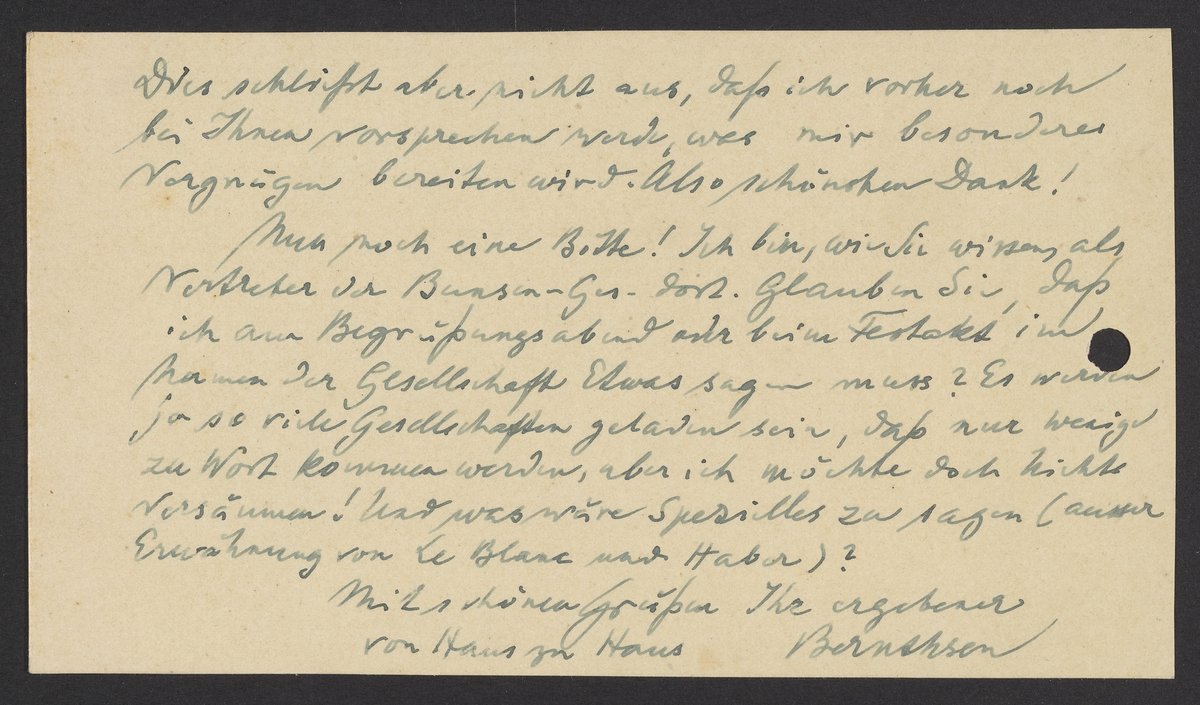 Dies schließt aber nicht aus, daß ich vorher noch
bei Ihnen vorsprechen werde, was mir besonderes
Vergnügen bereiten wird. Also schönsten Dank!
Nun noch eine Bitte! Ich bin, wie Sie wissen, als
Vertreter der Bunsen-Ges. dort. Glauben Sie, daß
ich am Begrüßungsabend oder beim Festakt im
Namen der Gesellschaft Etwas sagen muss? Es werden
ja so viele Gesellschaften geladen sein, daß nur wenige
zu Wort kommen werden, aber ich möchte doch Nichts
versäumen! Und was wäre Spezielles zu sagen (ausser
Erwähnung von Le Blanc und Haber)?
Mit schönen Grüßen Ihr ergebener
von Haus zu Haus Bernthsen